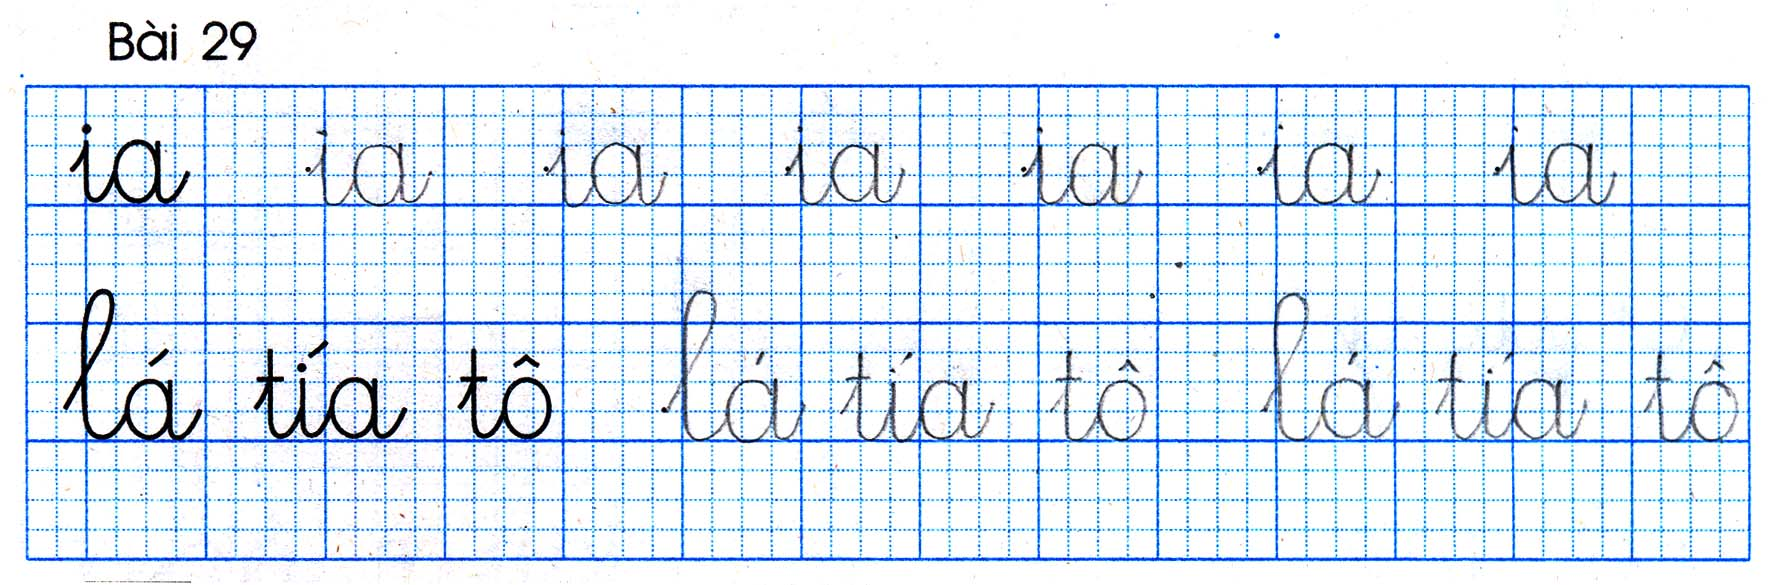 Bài 29
ia ia ia ia ia ia ia
lá tía tô lá tía tô lá tía tô